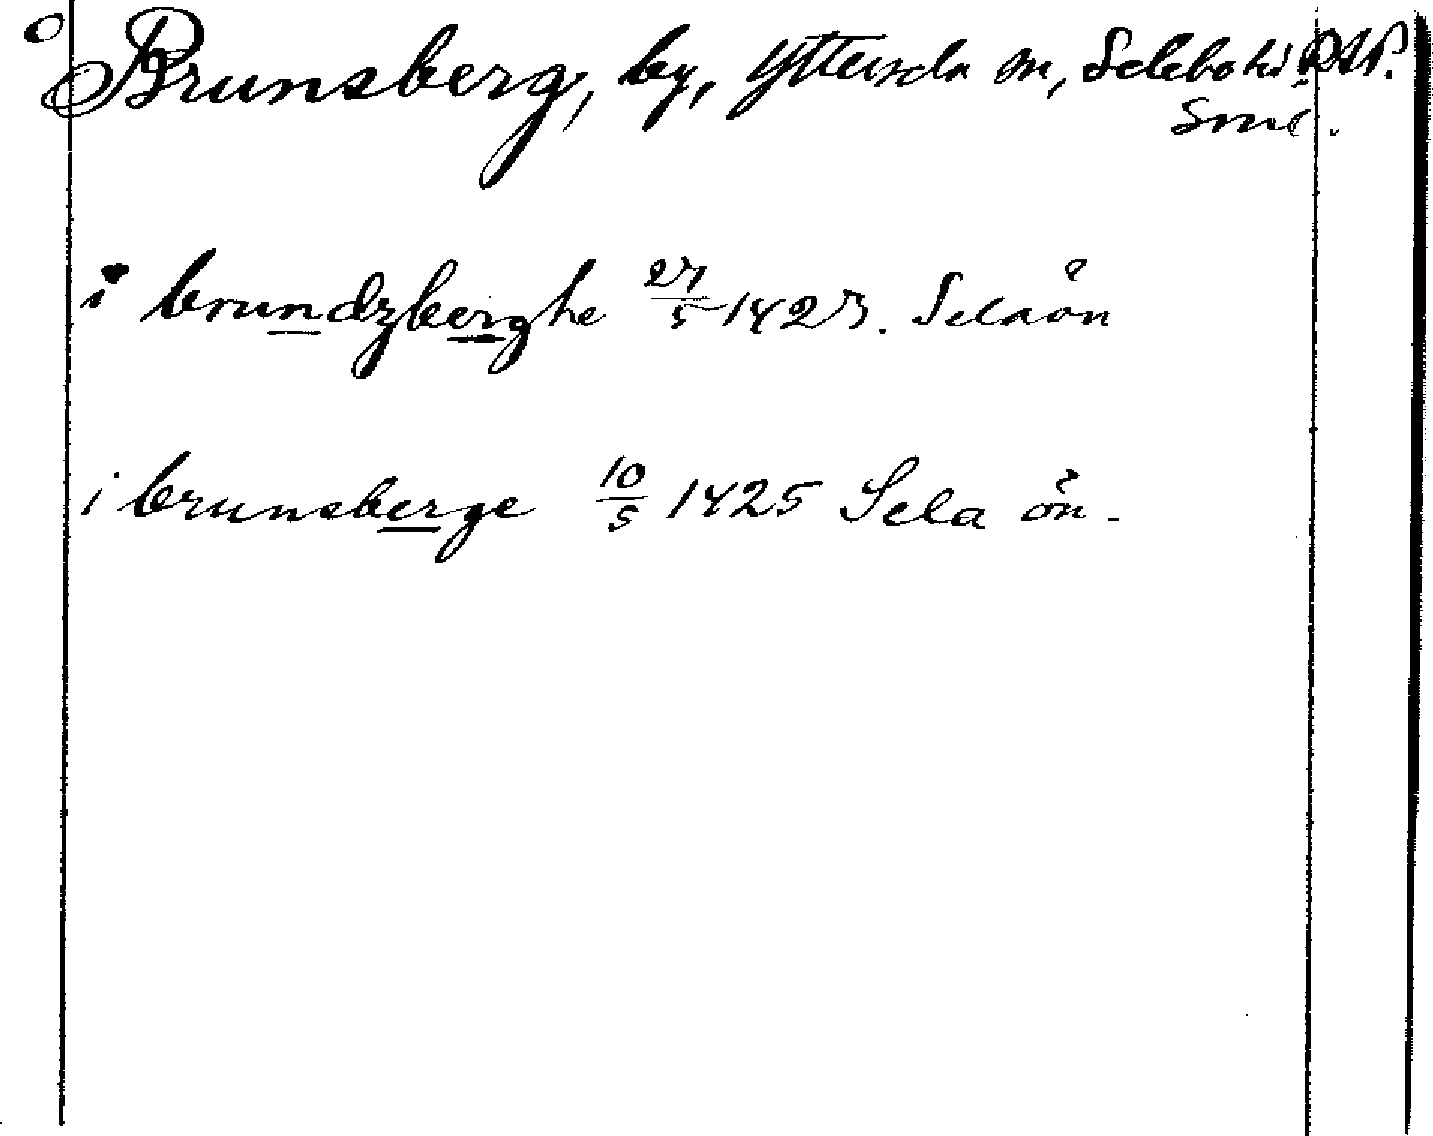 Brunsberg, by, Yttersela sn, Selebo hd
Sml.
i brundzberghe 27/5 1423. Selaön
i brunsberge 10/5 1425 Sela ön.